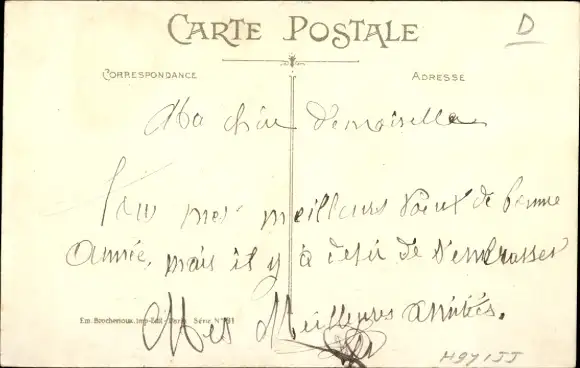 CARTE POSTALE
D
CORRESPONDANCE
ADRESSE
Ma chère Demoiselle
Tous mes meilleurs Voeux de bonne
année, mais il y à desir de s'embrasser
Mes Meilleures amitiés.
Em. Brocherioux, imp-Edit - Paris Série N°
H971JJ